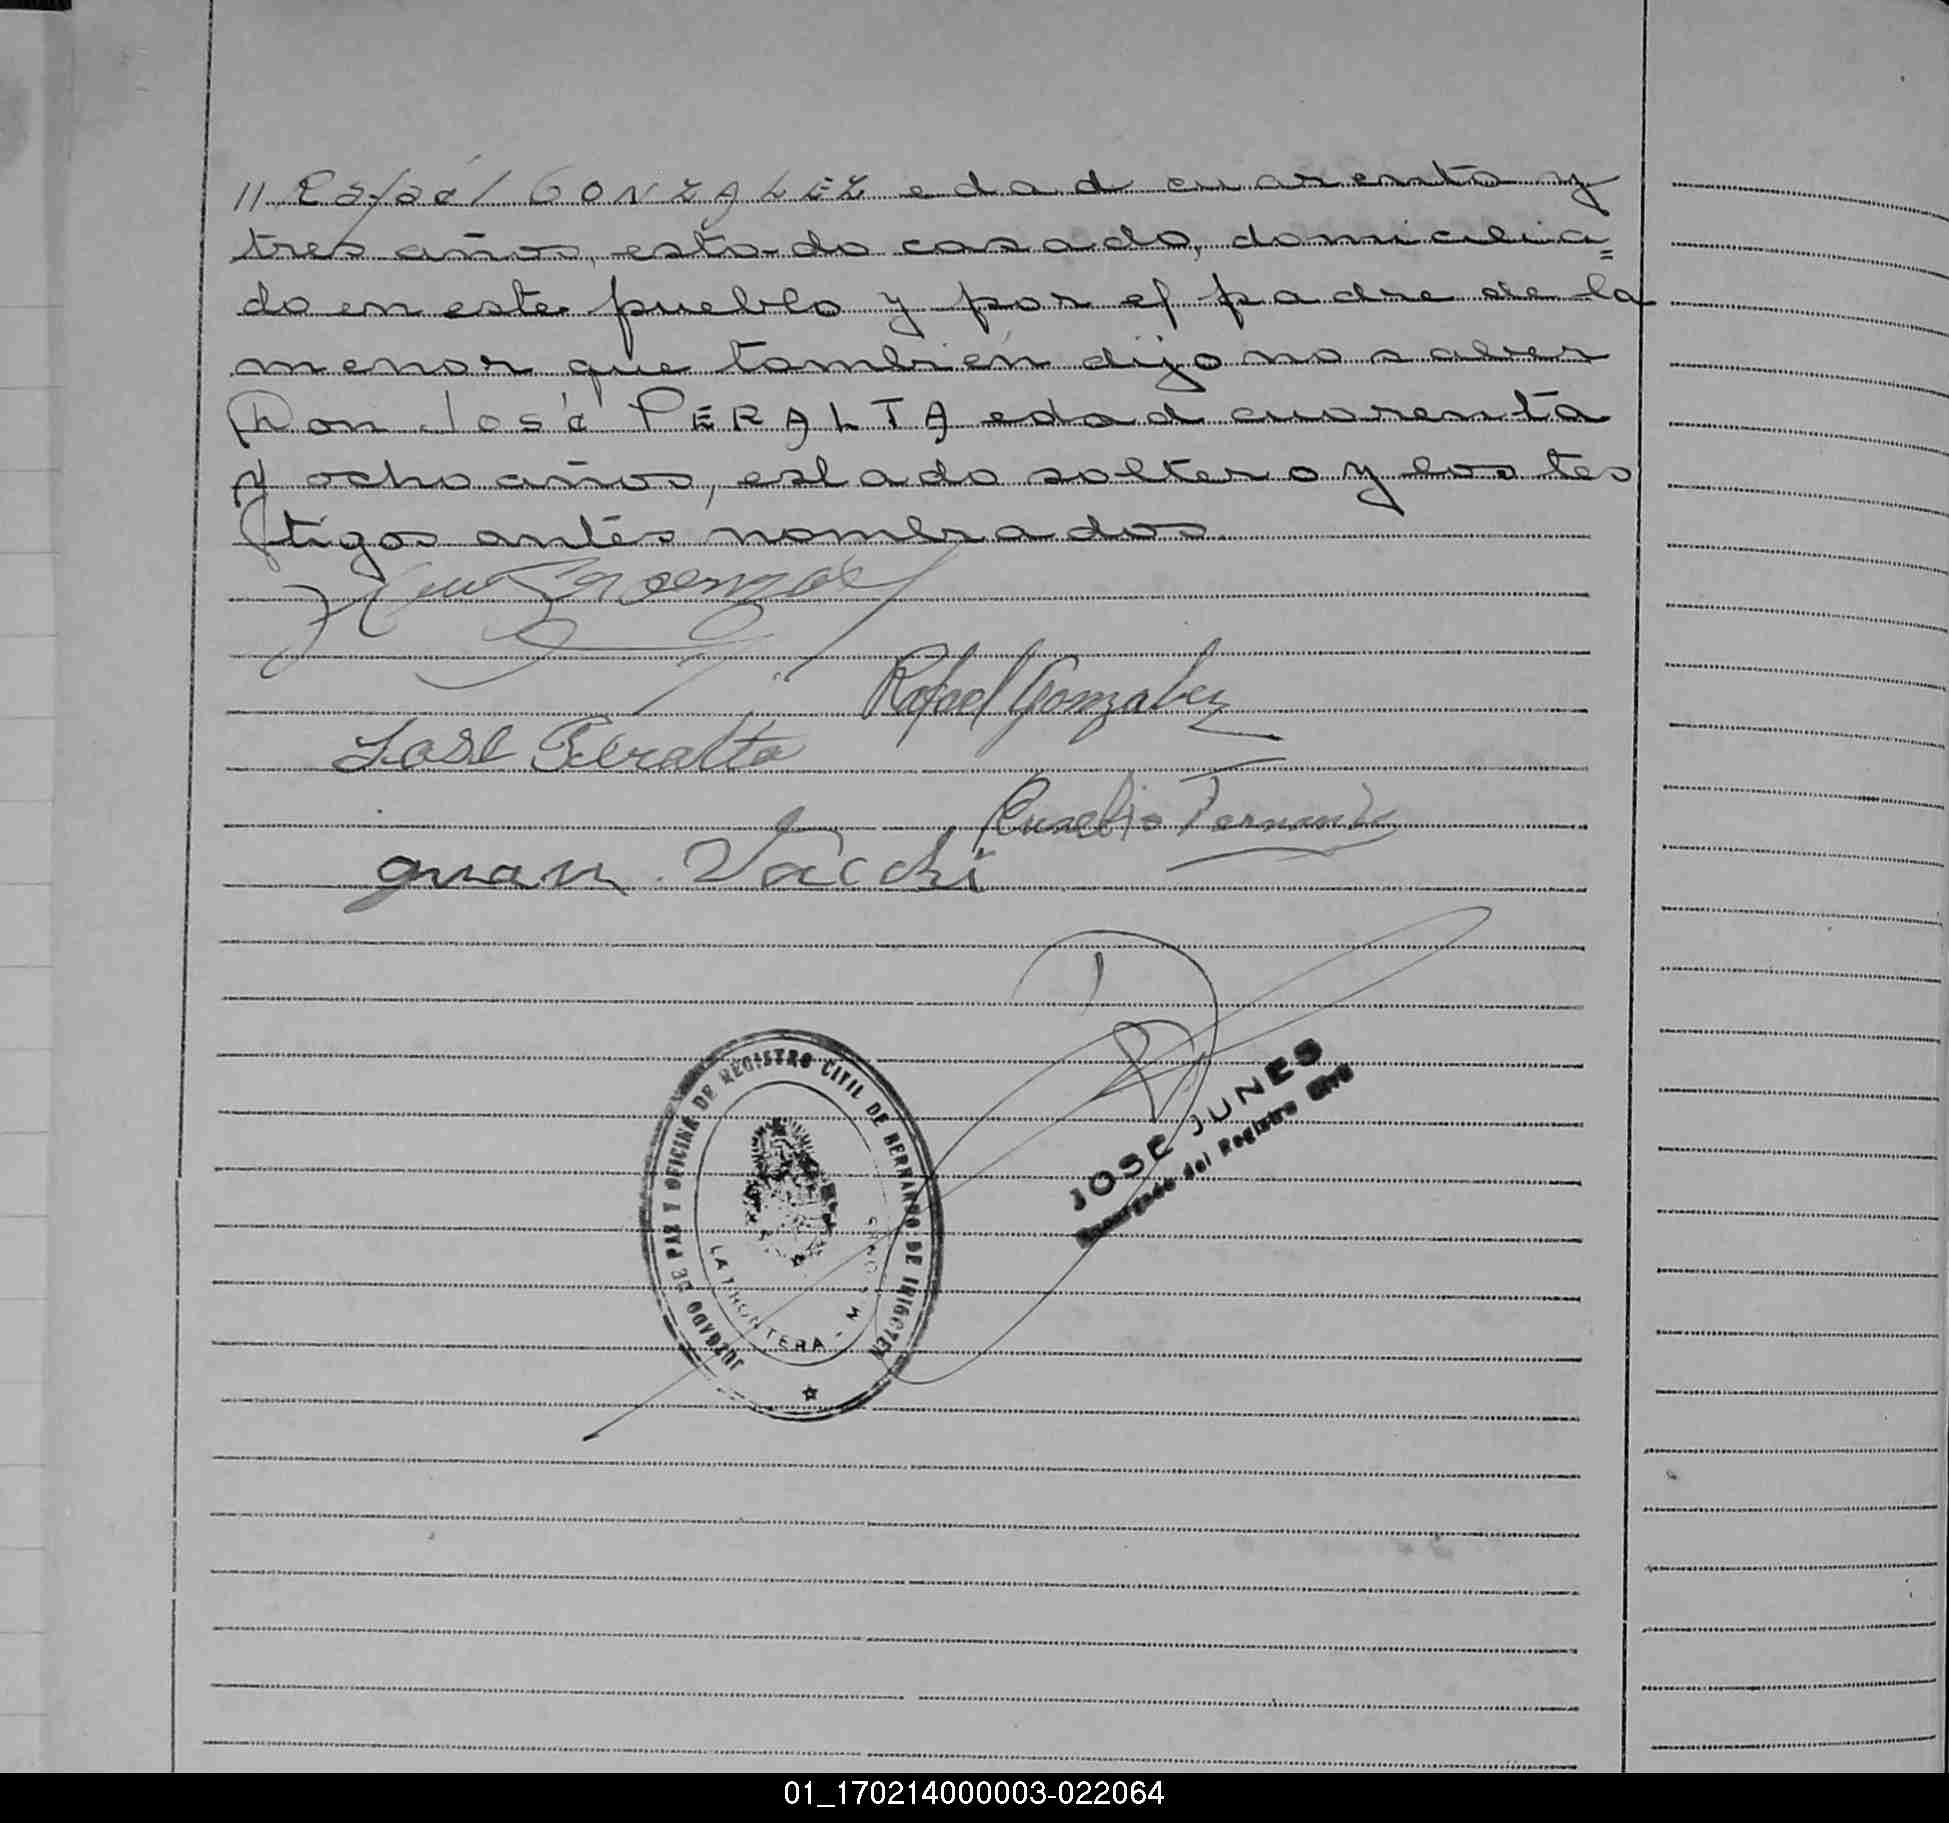 // Rafaél GONZALEZ edad cuarenta y
tres años, estado casado, domicilia=
do en este pueblo y por el padre de la
menor que también dijo no saber
Don José PERALTA edad cuarenta
y ocho años, estado soltero y los tes
tigos antes nombrados.
Rafael Gonzalez
José Peralta
Juan Vacchi
JOSE JUNES
Encargado del Registro Civil
JUZGADO DE PAZ Y OFICINA DE REGISTRO CIVIL DE BERNARDO DE IRIGOYEN
LA FRONTERA - M
01_170214000003-022064